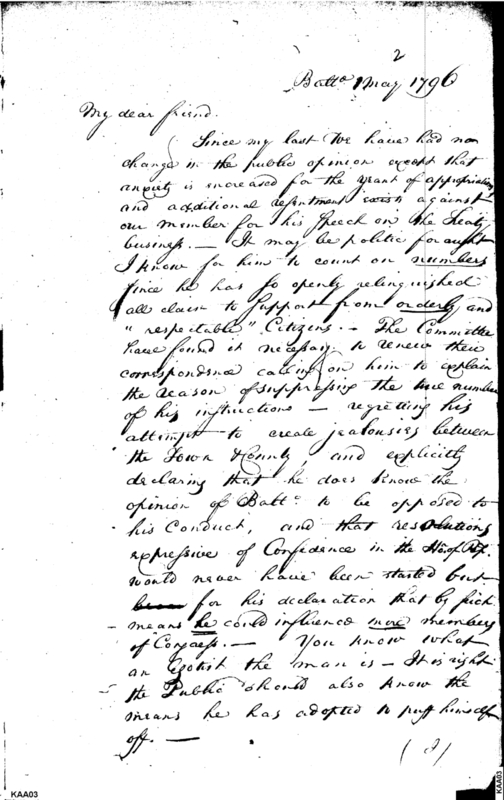 2
Balto May 1796
My dear friend.
Since my last We have had no
change in the public opinion except that
anxiety is increased for the grant of appropriation
and additional resentment exists against
our member for his Speech on the Treaty
business. — It may be politic for aught
I know for him to count on numbers
since he has so openly relinquished
all claim to Support from orderly and
"respectable" Citizens. — The Committee
have found it necessary to renew their
correspondence calling on him to explain
the reason of suppressing the true number
of his instructions — regretting his
attempt to create jealousies between
the Town & County, and explicitly
declaring that he does know the
opinion of Balto to be opposed to
his Conduct, and that resolutions
expressive of Confidence in the Ho. of Rep.
would never have been started but
for his declaration that by such
means he could influence more members
of Congress. — You know what
an Egotist the man is — It is right
the Public should also know the
means he has adopted to puff himself
off. —
KAA03
KAA03